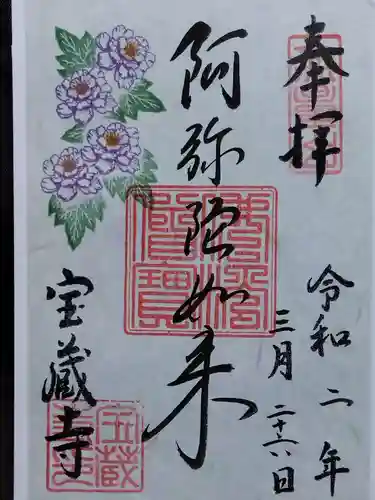 奉拝
令和二年
三月二十六日
阿弥陀如来
宝蔵寺